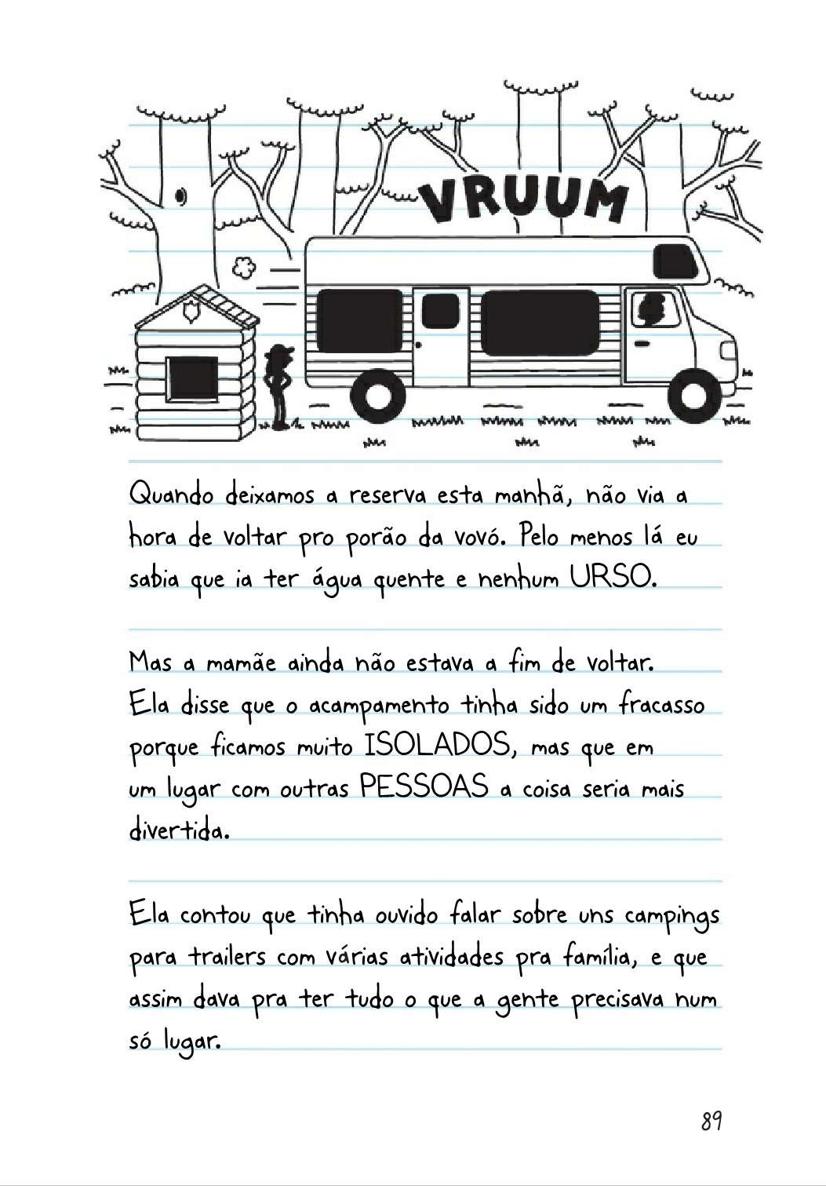 VRUUM
Quando deixamos a reserva esta manhã, não via a
hora de voltar pro porão da vovó. Pelo menos lá eu
sabia que ia ter água quente e nenhum URSO.
Mas a mamãe ainda não estava a fim de voltar.
Ela disse que o acampamento tinha sido um fracasso
porque ficamos muito ISOLADOS, mas que em
um lugar com outras PESSOAS a coisa seria mais
divertida.
Ela contou que tinha ouvido falar sobre uns campings
para trailers com várias atividades pra família, e que
assim dava pra ter tudo o que a gente precisava num
só lugar.
89